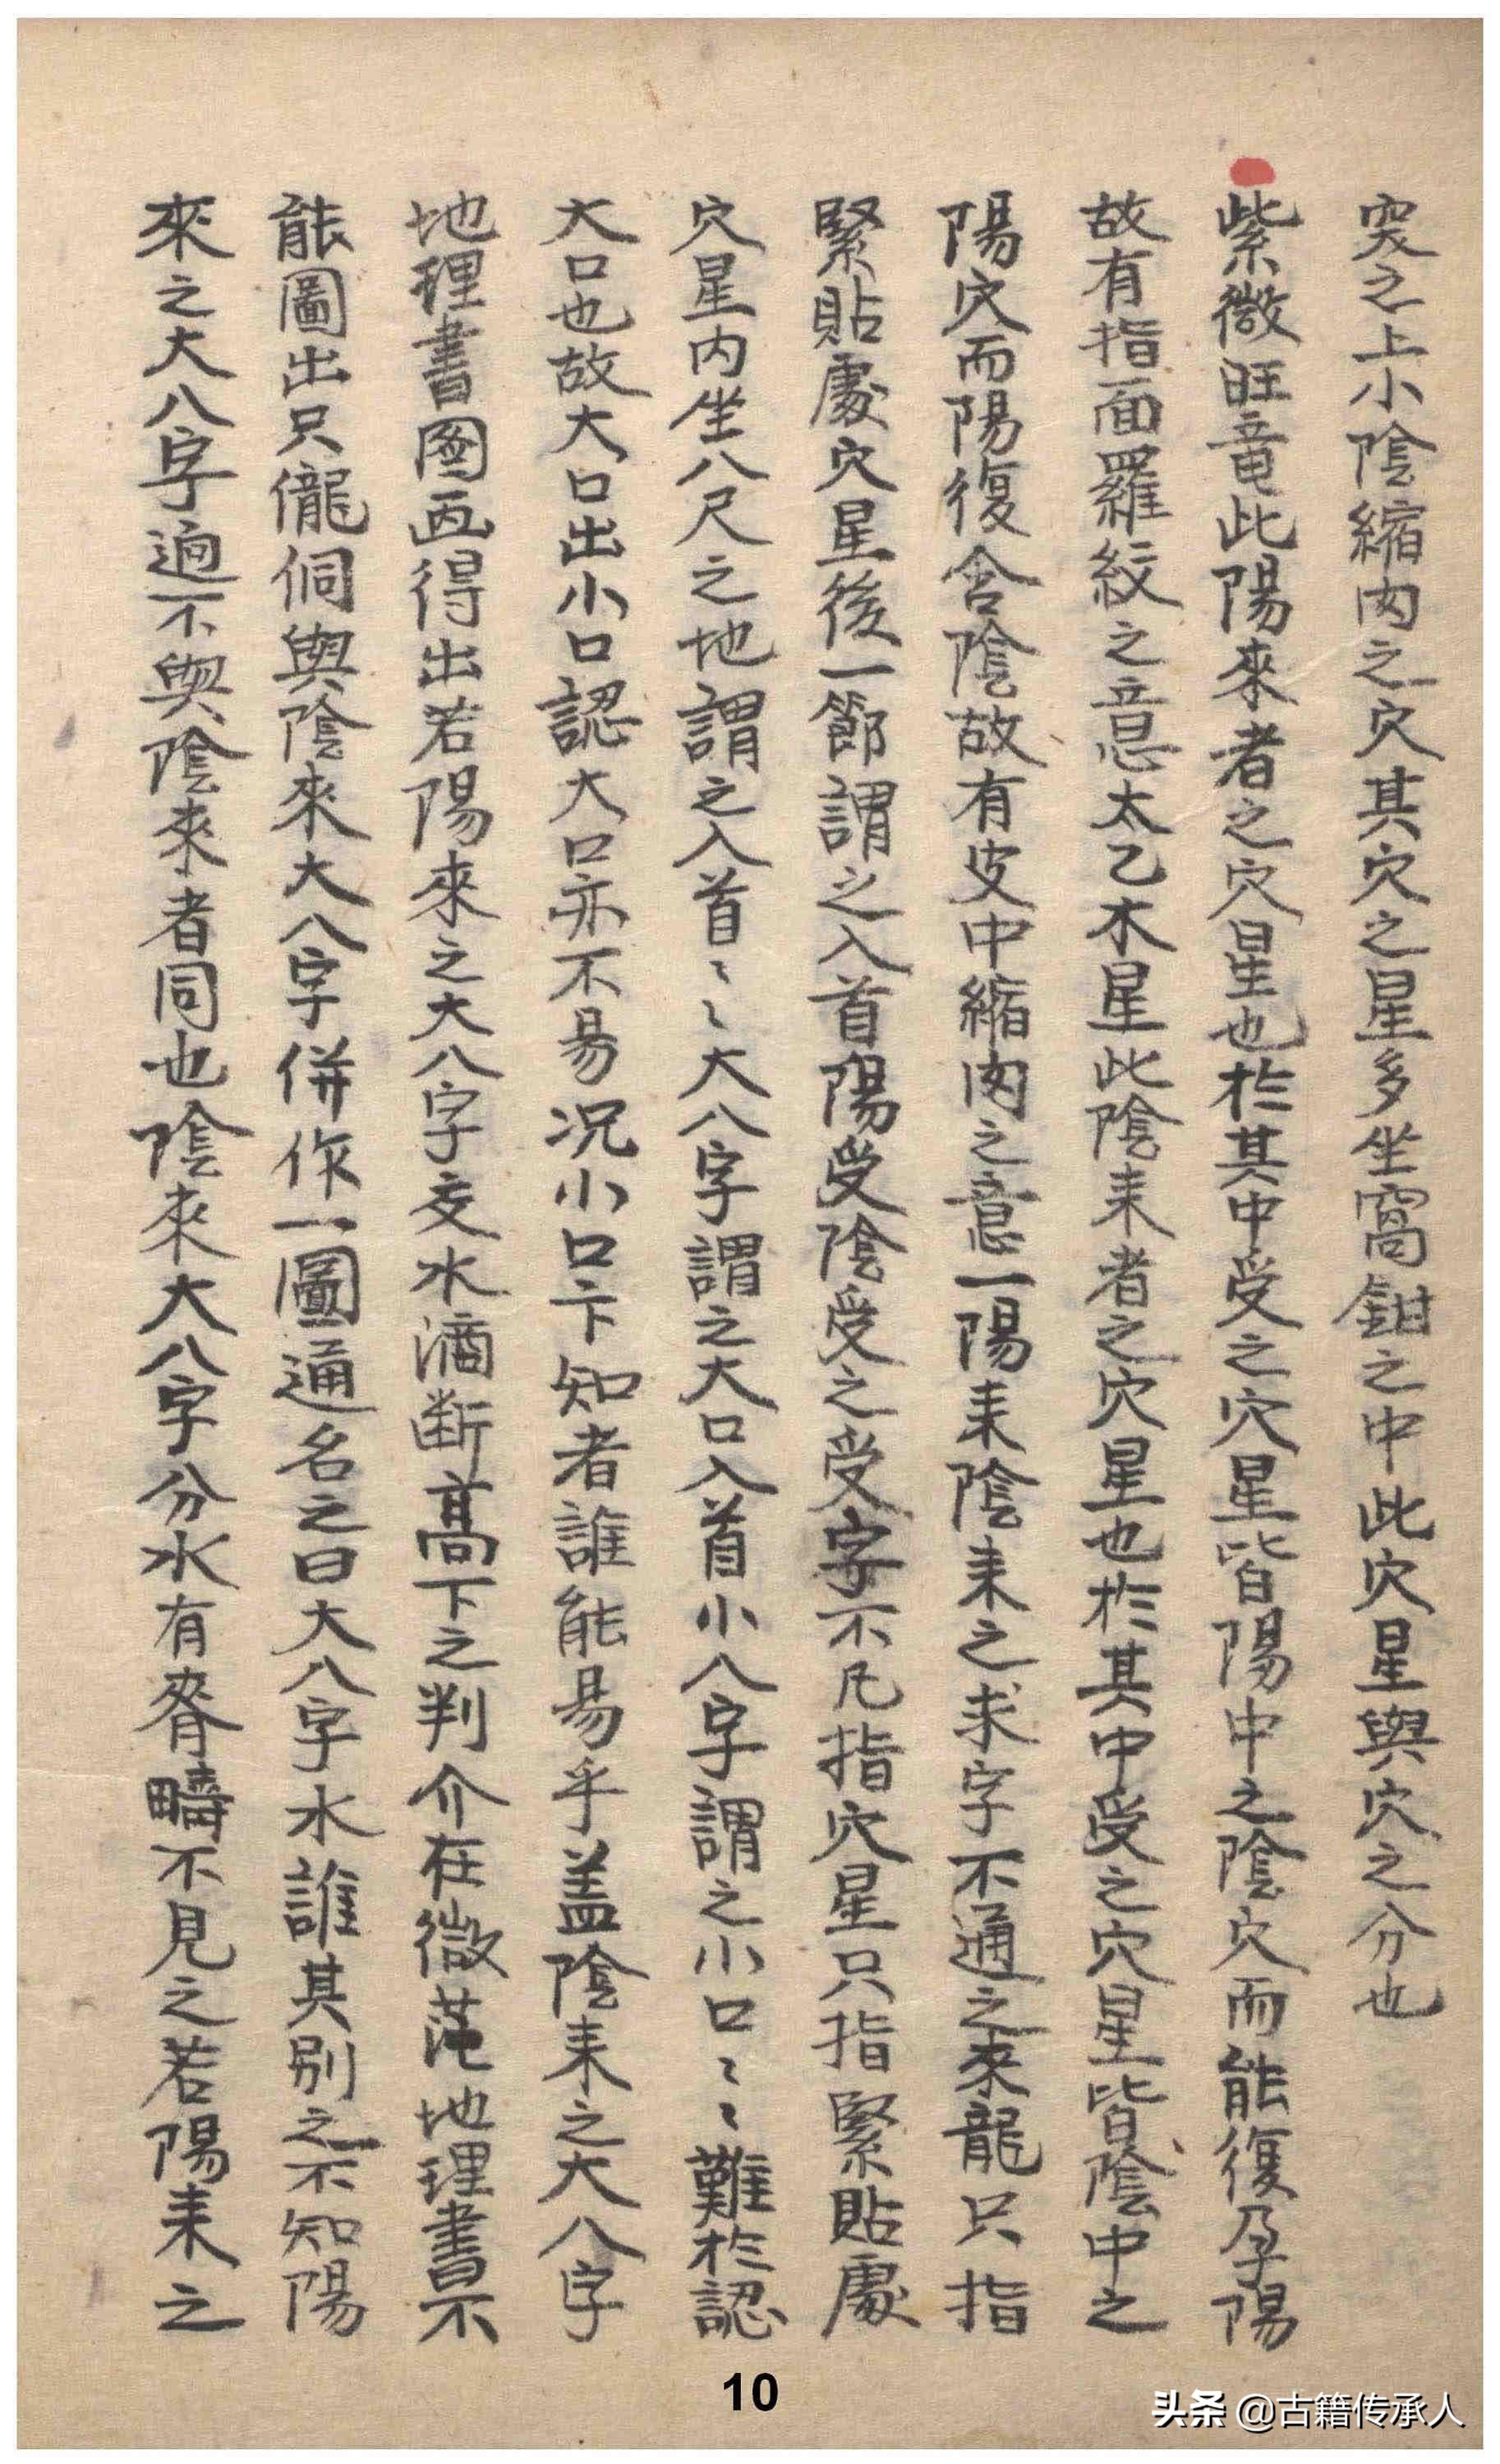 突之上小陰縮肉之穴其穴之星多坐窩鉗之中此穴星與穴之分也
紫微旺竜此陽來者之穴星也於其中受之穴星皆陽中之陰穴而能復孕陽
故有指面羅紋之意太乙木星此陰来者之穴星也於其中受之穴星皆陰中之
陽穴而陽復含陰故有皮中縮肉之意一陽来陰来之求字不通之來龍只指
緊貼處穴星後一節謂之入首陽受陰受之受字不凡指穴星只指緊貼處
穴星內坐八尺之地謂之入首〻〻大八字謂之大口入首小八字謂之小口〻〻難於認
大口也故大口出小口認大口亦不易况小口卞知者誰能易乎盖陰来之大八字
地理書圖画得出若陽來之大八字交水滴断高下之判介在微茫地理書不
能圖出只儱侗與陰來大八字併作一圖通名之曰大八字水誰其别之不知陽
來之大八字逈不與陰來者同也陰來大八字分水有脊疇不見之若陽来之
10
头条 @古籍传承人